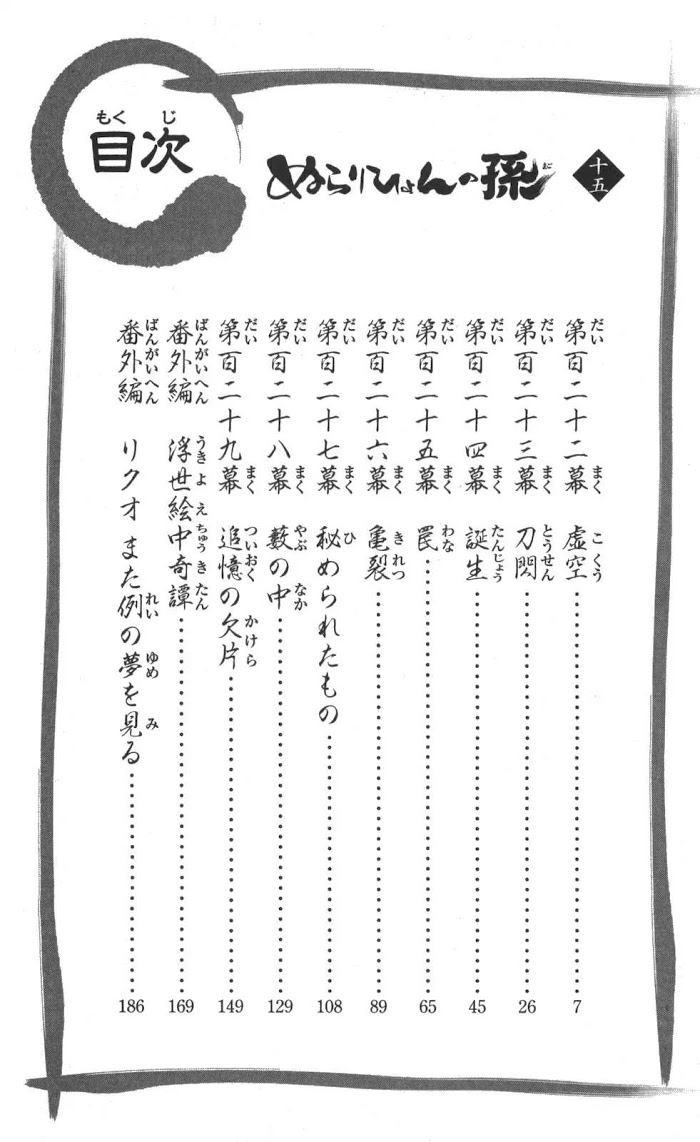 目次
もくじ
ぬらりひょんの孫
まご
十五
第百二十二幕 虚空 7
だい まく こくう
第百二十三幕 刀閃 26
だい まく とうせん
第百二十四幕 誕生 45
だい まく たんじょう
第百二十五幕 罠 65
だい まく わな
第百二十六幕 亀裂 89
だい まく きれつ
第百二十七幕 秘められたもの 108
だい まく ひ
第百二十八幕 藪の中 129
だい まく やぶ なか
第百二十九幕 追憶の欠片 149
だい まく ついおく かけら
番外編 浮世絵中奇譚 169
ばんがいへん うきよえちゅうきたん
番外編 リクオまた例の夢を見る 186
ばんがいへん れい ゆめ み